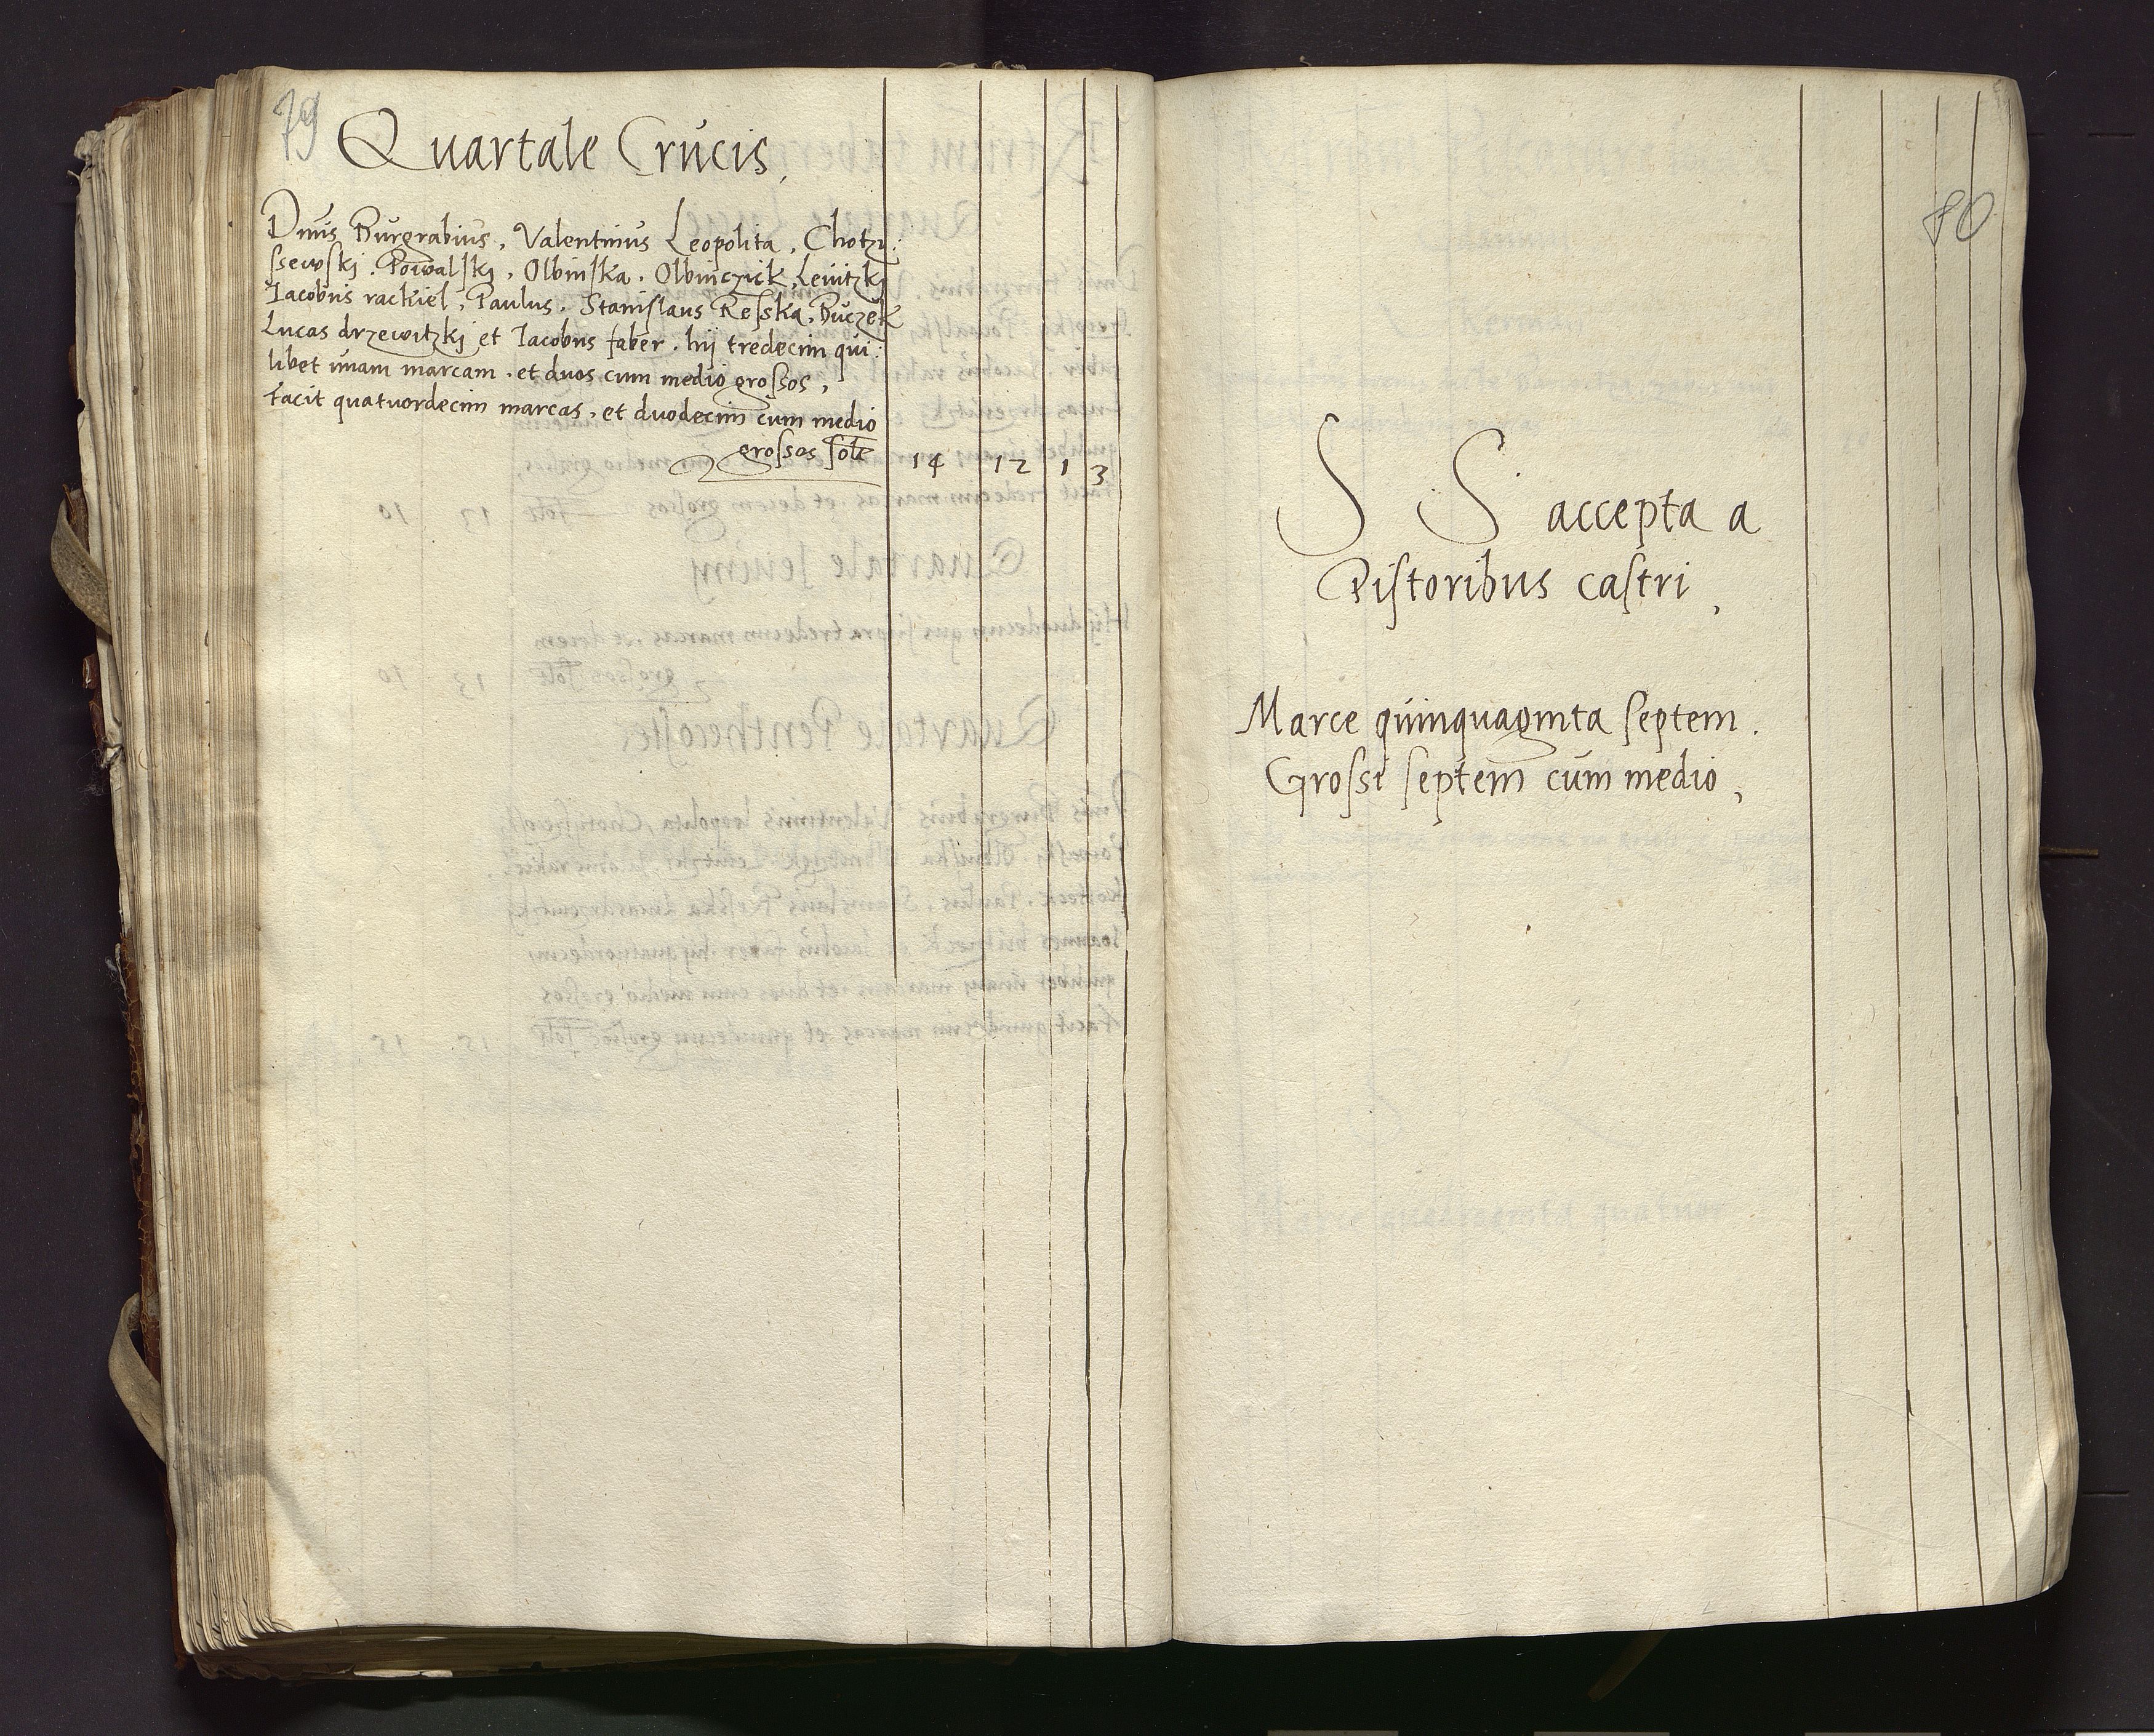 79
Quartale Crucis,
Dnus Burgrabius, Valentinus Leopolita, Chotzi:
ssewskj. Powalskj, Olbinska. Olbinczick, Levitzkj
Iacobus rackiel, Paulus. Stanislaus Resska, Buczek
Lucas drzewitzkj et Iacobus faber. hij tredecim qui:
libet unam marcam. et duos cum medio grossos,
facit quatuordecim marcas, et duodecim cum medio
grossos solt 14 12 1 3
80
S S accepta a
Pistoribus castri,
Marce quinquaginta septem.
Grossi septem cum medio,